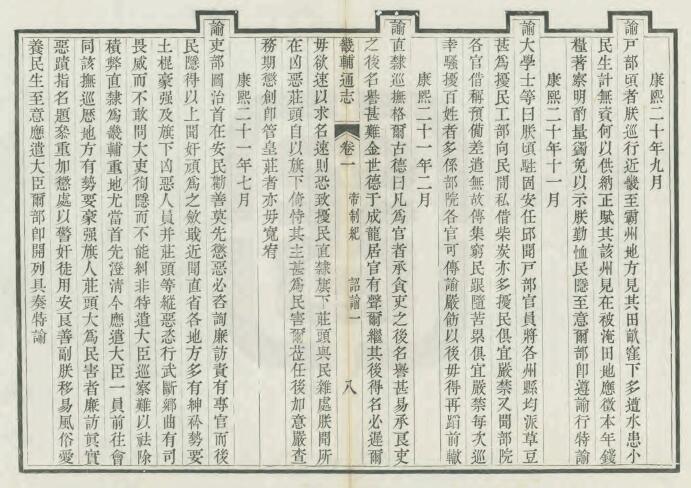 康熙二十年九月
諭戸部頃者朕巡行近畿至霸州地方見其田畝窪下多遭水患小
民生計無資何以供納正賦其該州見在被淹田地應徵本年錢
糧著察明酌量蠲免以示朕勤恤民隱至意爾部卽遵諭行特諭
康熙二十年十一月
諭大學士等曰朕頃駐固安任邱聞戸部官員將各州縣均派草豆
甚爲擾民工部向民間私借柴炭亦多擾民俱宜嚴禁又聞部院
各官借稱預備差遣無故傳集窮民跟隨苦累俱宜嚴禁每次巡
幸騷擾百姓者多係部院各官可傳諭嚴飭以後毋得再蹈前轍
康熙二十一年二月
諭直隸巡撫格爾古德曰凡爲官者承貪吏之後名譽甚易承良吏
之後名譽甚難金世德于成龍居官有聲爾繼其後得名必遲爾
畿輔通志 卷一 帝制紀 詔諭一 八
毋欲速以求名速則恐致擾民直隸旗下莊頭與民雜處朕聞所
在凶惡莊頭自以旗下倚恃其主甚爲民害爾蒞任後如意嚴查
務期懲創卽管皇莊者亦毋寬宥
康熙二十一年七月
諭吏部圖治首在安民勸善莫先懲惡必咨詢廉訪責有專官而後
民隱得以上聞奸頑爲之斂戢近聞直省各地方多有紳衿勢要
土棍豪强及旗下凶惡人員并莊頭等縱惡恣行武斷鄉曲有司
畏威而不敢問大吏徇隱而不能糾非特遣大臣巡察難以祛除
積弊直隸爲畿輔重地尤當首先澄清今應遣大臣一員前往會
同該撫巡歷地方有勢要豪强旗人莊頭大爲民害者廉訪眞實
惡蹟指名題叅重加懲處以警奸徒用安良善副朕移易風俗愛
養民生至意應遣大臣爾部卽開列具奏特諭